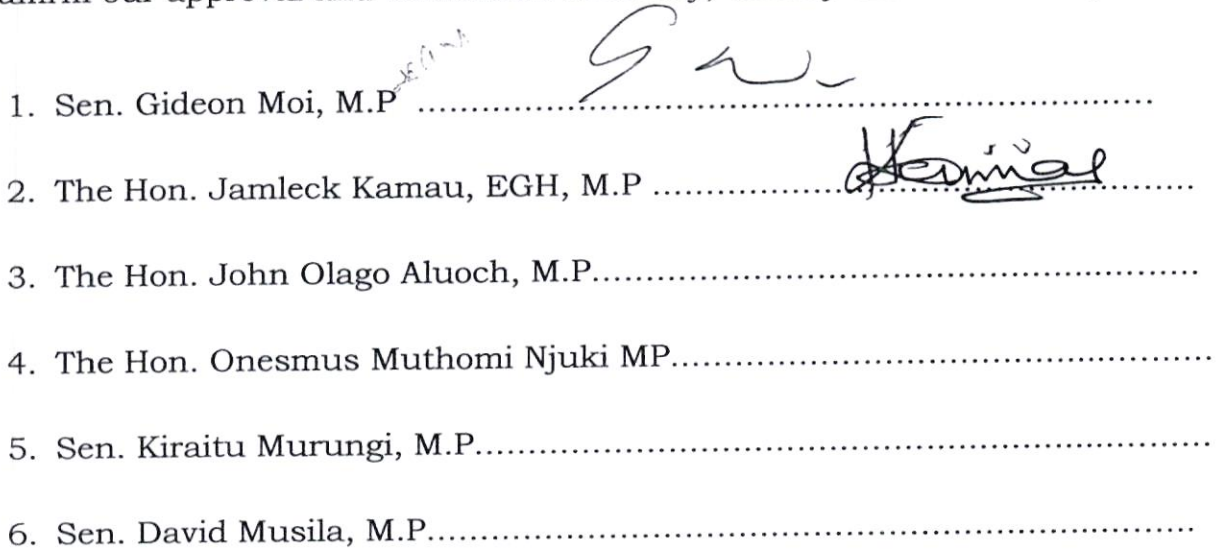 1. Sen. Gideon Moi, M.P ......................................................................
2. The Hon. Jamleck Kamau, EGH, M.P ....................................................
3. The Hon. John Olago Aluoch, M.P..........................................................
4. The Hon. Onesmus Muthomi Njuki MP...................................................
5. Sen. Kiraitu Murungi, M.P......................................................................
6. Sen. David Musila, M.P.........................................................................